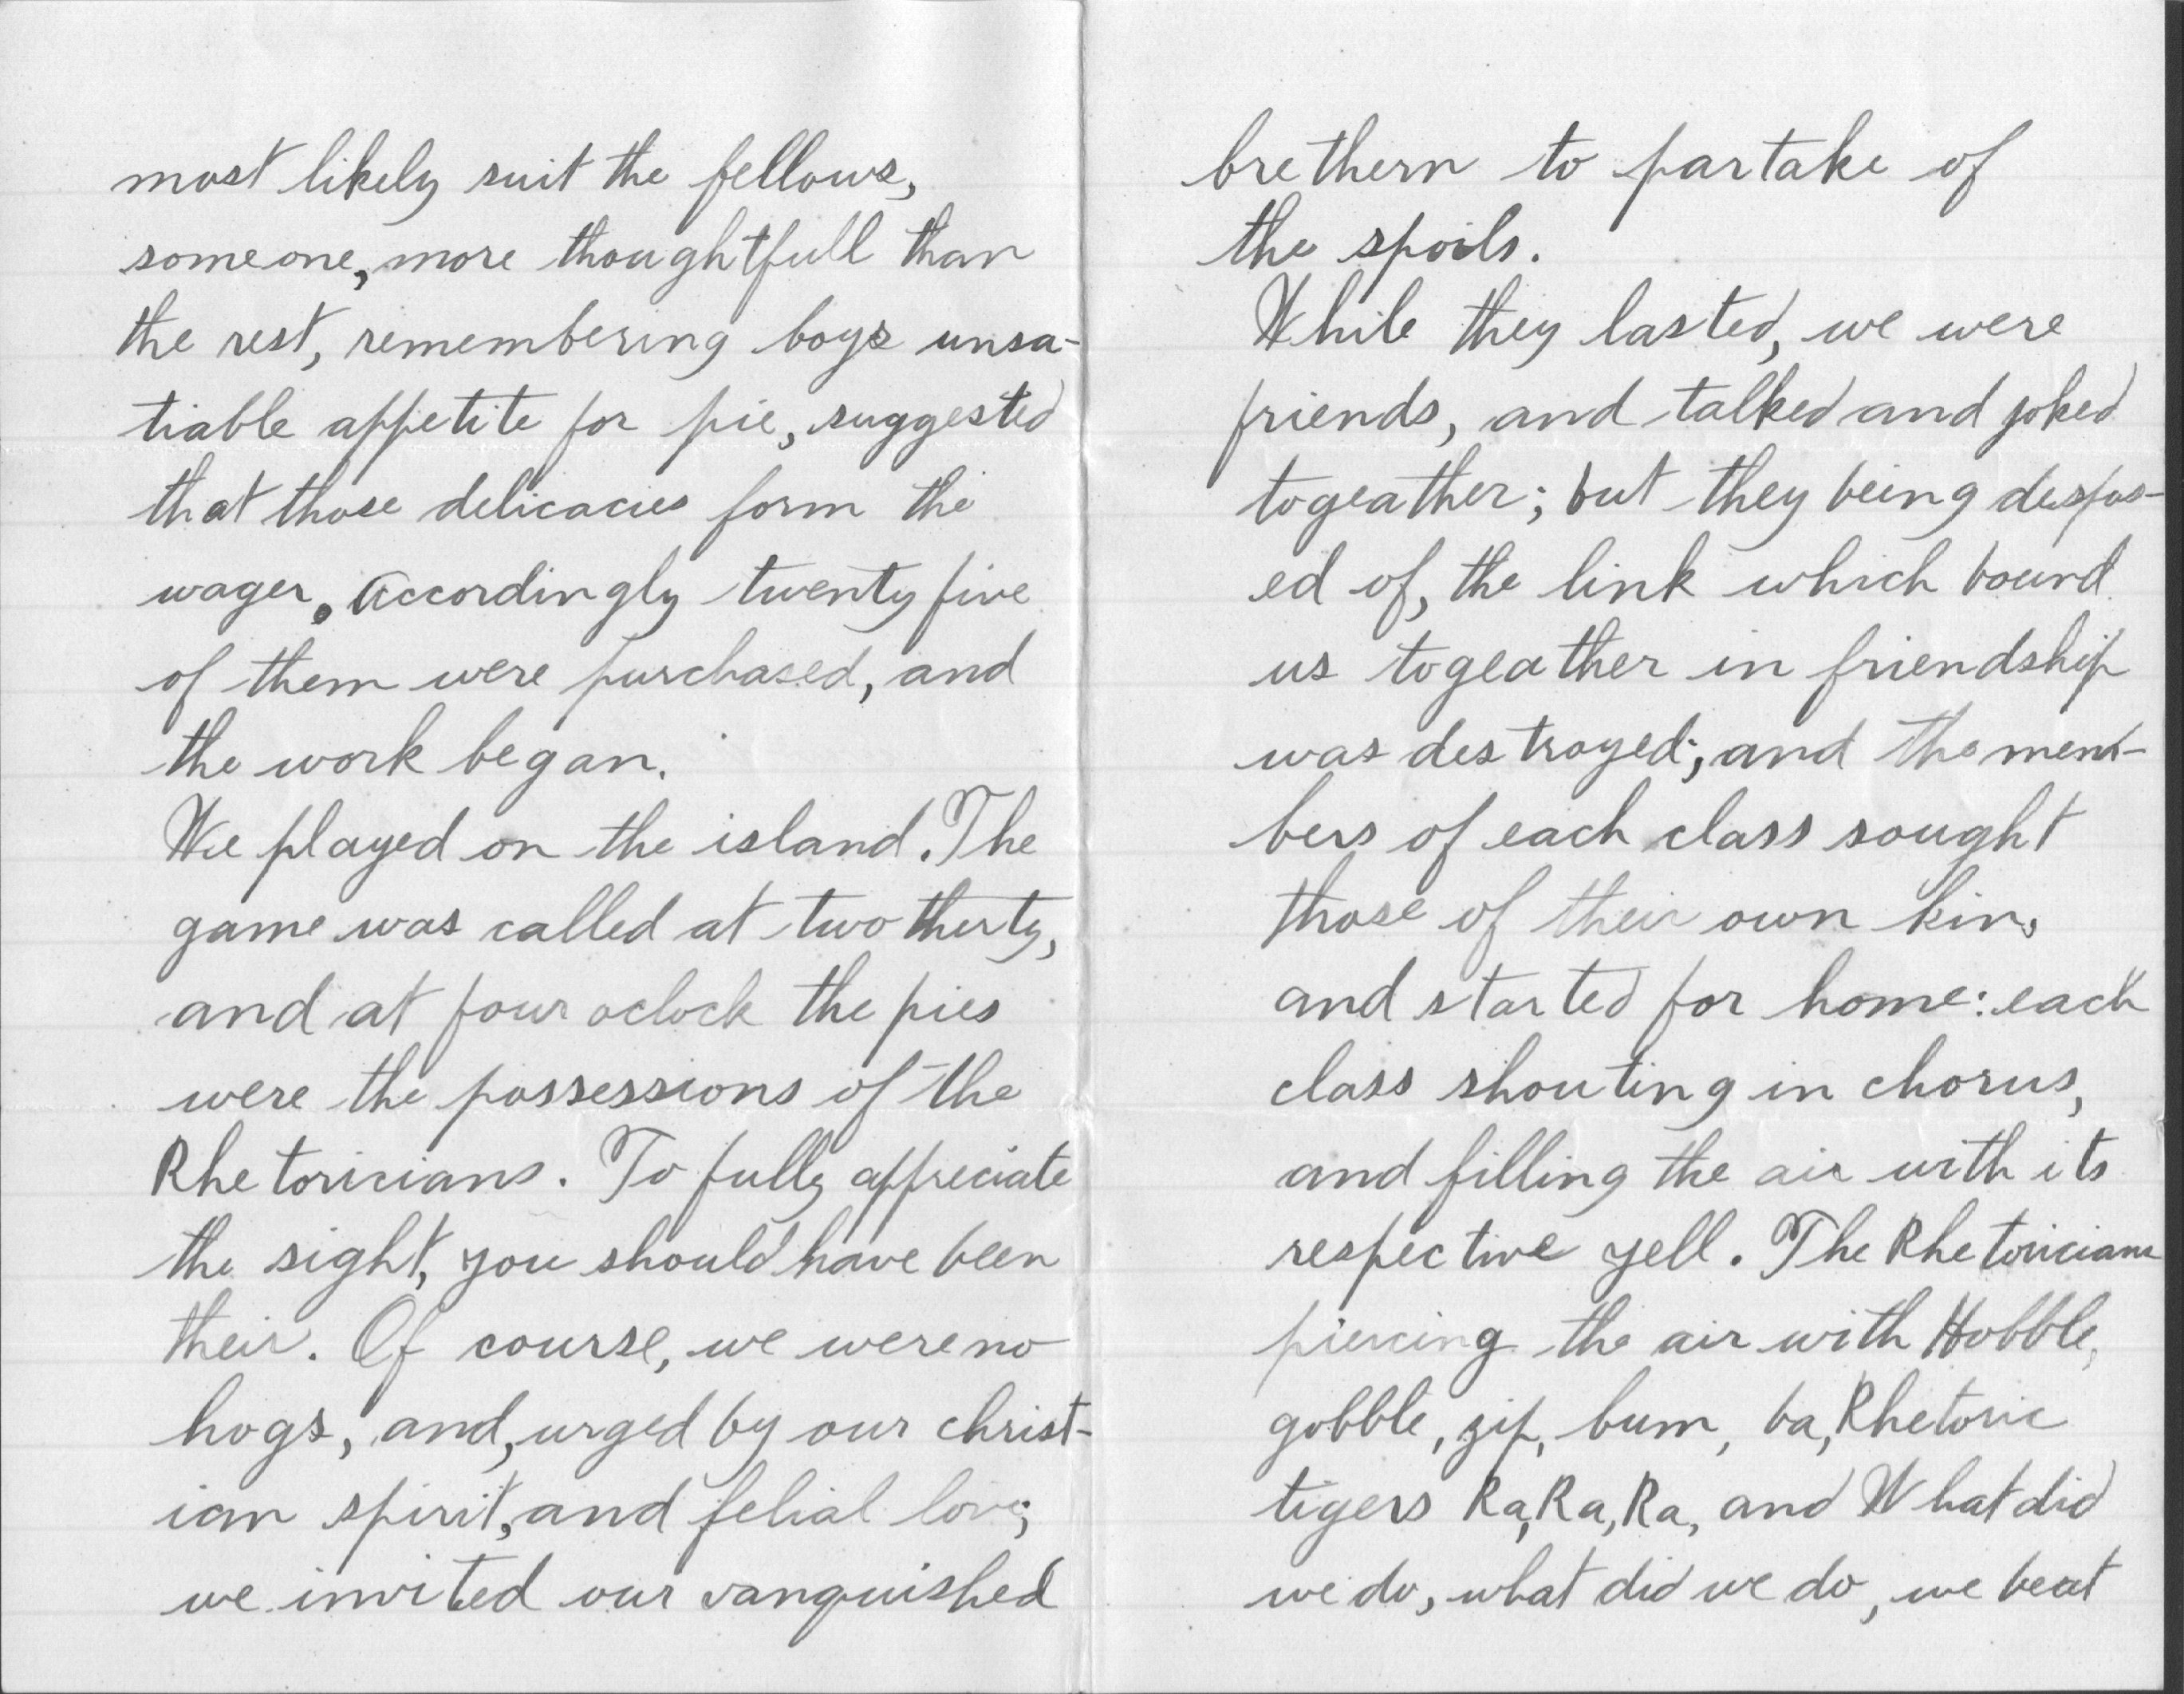 most likely suit the fellows,
someone, more thoughtfull than
the rest, remembering boys unsa-
tiable appetite for pie, suggested
that those delicacies form the
wager. Accordingly twenty five
of them were purchased, and
the work began.
We played on the island. The
game was called at two therty,
and at four oclock the pies
were the possessions of the
Rhetoricians. To fully appreciate
the sight, you should have been
their. Of course, we were no
hogs, and, urged by our christ-
ian spirit, and felial love;
we invited our vanquished
brethern to partake of
the spoils.
While they lasted, we were
friends, and talked and joked
togeather; but they being despos-
ed of, the link which bound
us togeather in friendship
was destroyed; and the mem-
bers of each class sought
those of their own kin,
and started for home: each
class shouting in chorus,
and filling the air with its
respective yell. The Rhetoricians
piercing the air with Hobble,
gobble, zip, bum, ba, Rhetoric
tigers Ra, Ra, Ra, and What did
we do, what did we do, we beat